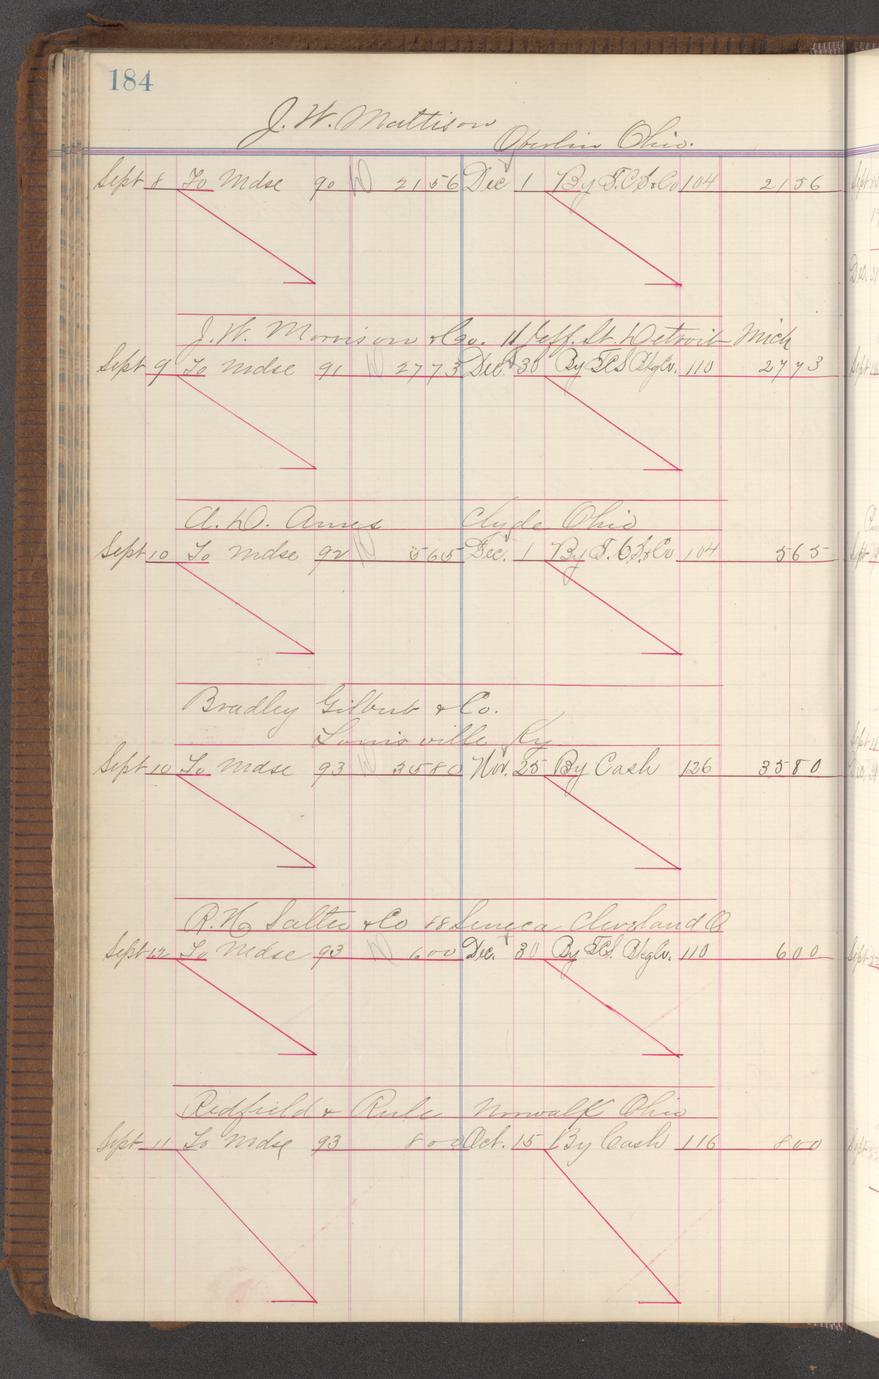 184
J. W. Mattison
Oberlin Ohio.
Sept 8 To Mdse 90 21 56 Dec 1 By T.C.S.&Co 104 21 56
J. W. Morrison & Co. 11 Jeff. St. Detroit Mich
Sept 9 To Mdse 91 27 73 Dec. 30 By 110 27 73
A. D. Ames Clyde Ohio
Sept 10 To Mdse 92 5 65 Dec. 1 By T.C.S.&Co 104 5 65
Bradley Gilbert & Co.
Louisville Ky
Sept 10 To Mdse 93 35 80 Nov. 25 By Cash 126 35 80
R. H. Salter & Co 88 Seneca Cleveland O
Sept 12 To Mdse 93 6 00 Dec. 30 By 110 6 00
Redfield & Rule Norwalk Ohio
Sept 11 To Mdse 93 8 00 Oct. 15 By Cash 116 8 00